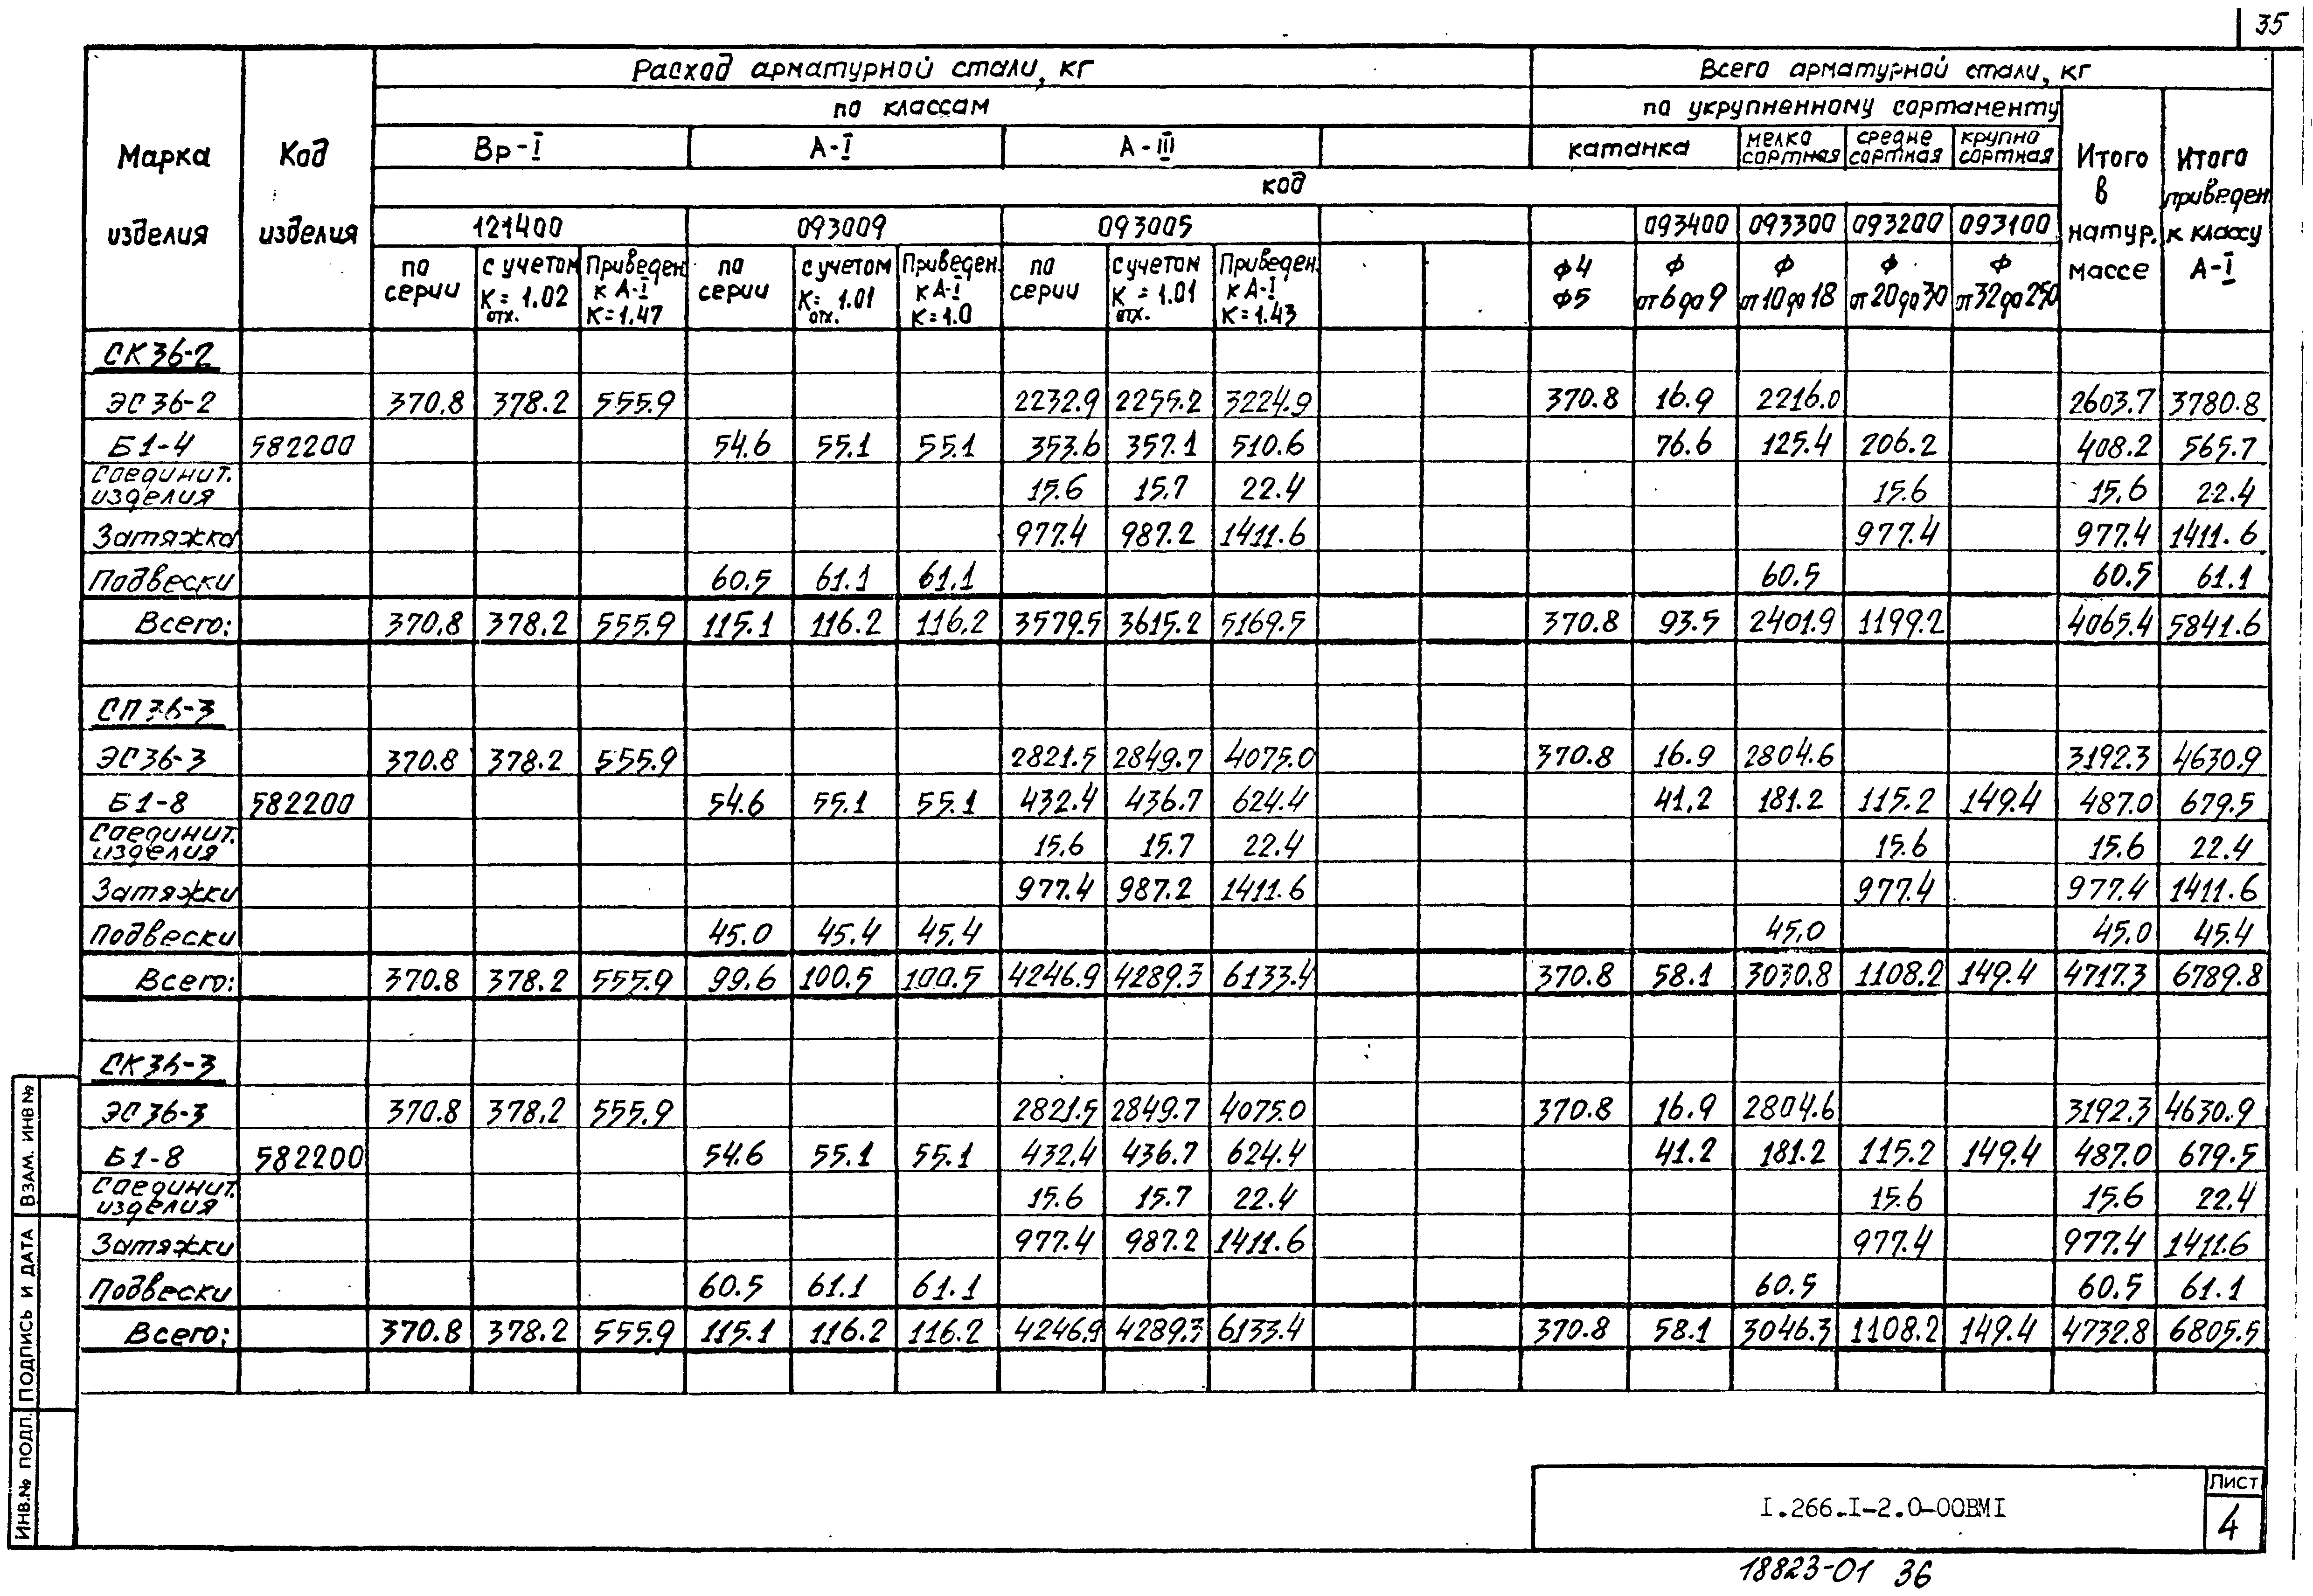 35
Расход арматурной стали, кг Всего арматурной стали, кг
по классам по укрупненному сортаменту
Марка изделия Код изделия Вр-I А-I А-III катанка мелко сортная средне сортная крупно сортная Итого в натур. массе Итого приведен. к классу А-I
код
121400 093009 093005 093400 093300 093200 093100
по серии с учетом К отх. = 1.02 Приведен. к А-I К=1.47 по серии с учетом К отх. = 1.01 Приведен. к А-I К=1.0 по серии с учетом К отх. = 1.01 Приведен. к А-I К=1.43 ф4 ф5 ф от 6 до 9 ф от 10 до 18 ф от 20 до 30 ф от 32 до 250
СК36-2
ЭС36-2 370.8 378.2 555.9 2232.9 2255.2 3224.9 370.8 16.9 2216.0 2603.7 3780.8
Б1-4 582200 54.6 55.1 55.1 353.6 357.1 510.6 76.6 125.4 206.2 408.2 565.7
Соединит. изделия 15.6 15.7 22.4 15.6 15.6 22.4
Затяжка 977.4 987.2 1411.6 977.4 977.4 1411.6
Подвески 60.5 61.1 61.1 60.5 60.5 61.1
Всего: 370.8 378.2 555.9 115.1 116.2 116.2 3579.5 3615.2 5169.5 370.8 93.5 2401.9 1199.2 4065.4 5841.6
СП36-3
ЭС36-3 370.8 378.2 555.9 2821.5 2849.7 4075.0 370.8 16.9 2804.6 3192.3 4630.9
Б1-8 582200 54.6 55.1 55.1 432.4 436.7 624.4 41.2 181.2 115.2 149.4 487.0 679.5
Соединит. изделия 15.6 15.7 22.4 15.6 15.6 22.4
Затяжки 977.4 987.2 1411.6 977.4 977.4 1411.6
Подвески 45.0 45.4 45.4 45.0 45.0 45.4
Всего: 370.8 378.2 555.9 99.6 100.5 100.5 4246.9 4289.3 6133.4 370.8 58.1 3030.8 1108.2 149.4 4717.3 6789.8
СК36-3
ЭС36-3 370.8 378.2 555.9 2821.5 2849.7 4075.0 370.8 16.9 2804.6 3192.3 4630.9
Б1-8 582200 54.6 55.1 55.1 432.4 436.7 624.4 41.2 181.2 115.2 149.4 487.0 679.5
Соединит. изделия 15.6 15.7 22.4 15.6 15.6 22.4
Затяжки 977.4 987.2 1411.6 977.4 977.4 1411.6
Подвески 60.5 61.1 61.1 60.5 60.5 61.1
Всего: 370.8 378.2 555.9 115.1 116.2 116.2 4246.9 4289.3 6133.4 370.8 58.1 3046.3 1108.2 149.4 4732.8 6805.5
ИНВ.№ ПОДЛ. ПОДПИСЬ И ДАТА ВЗАМ. ИНВ №
I.266.I-2.0-00ВМI
Лист
4
18823-01 36